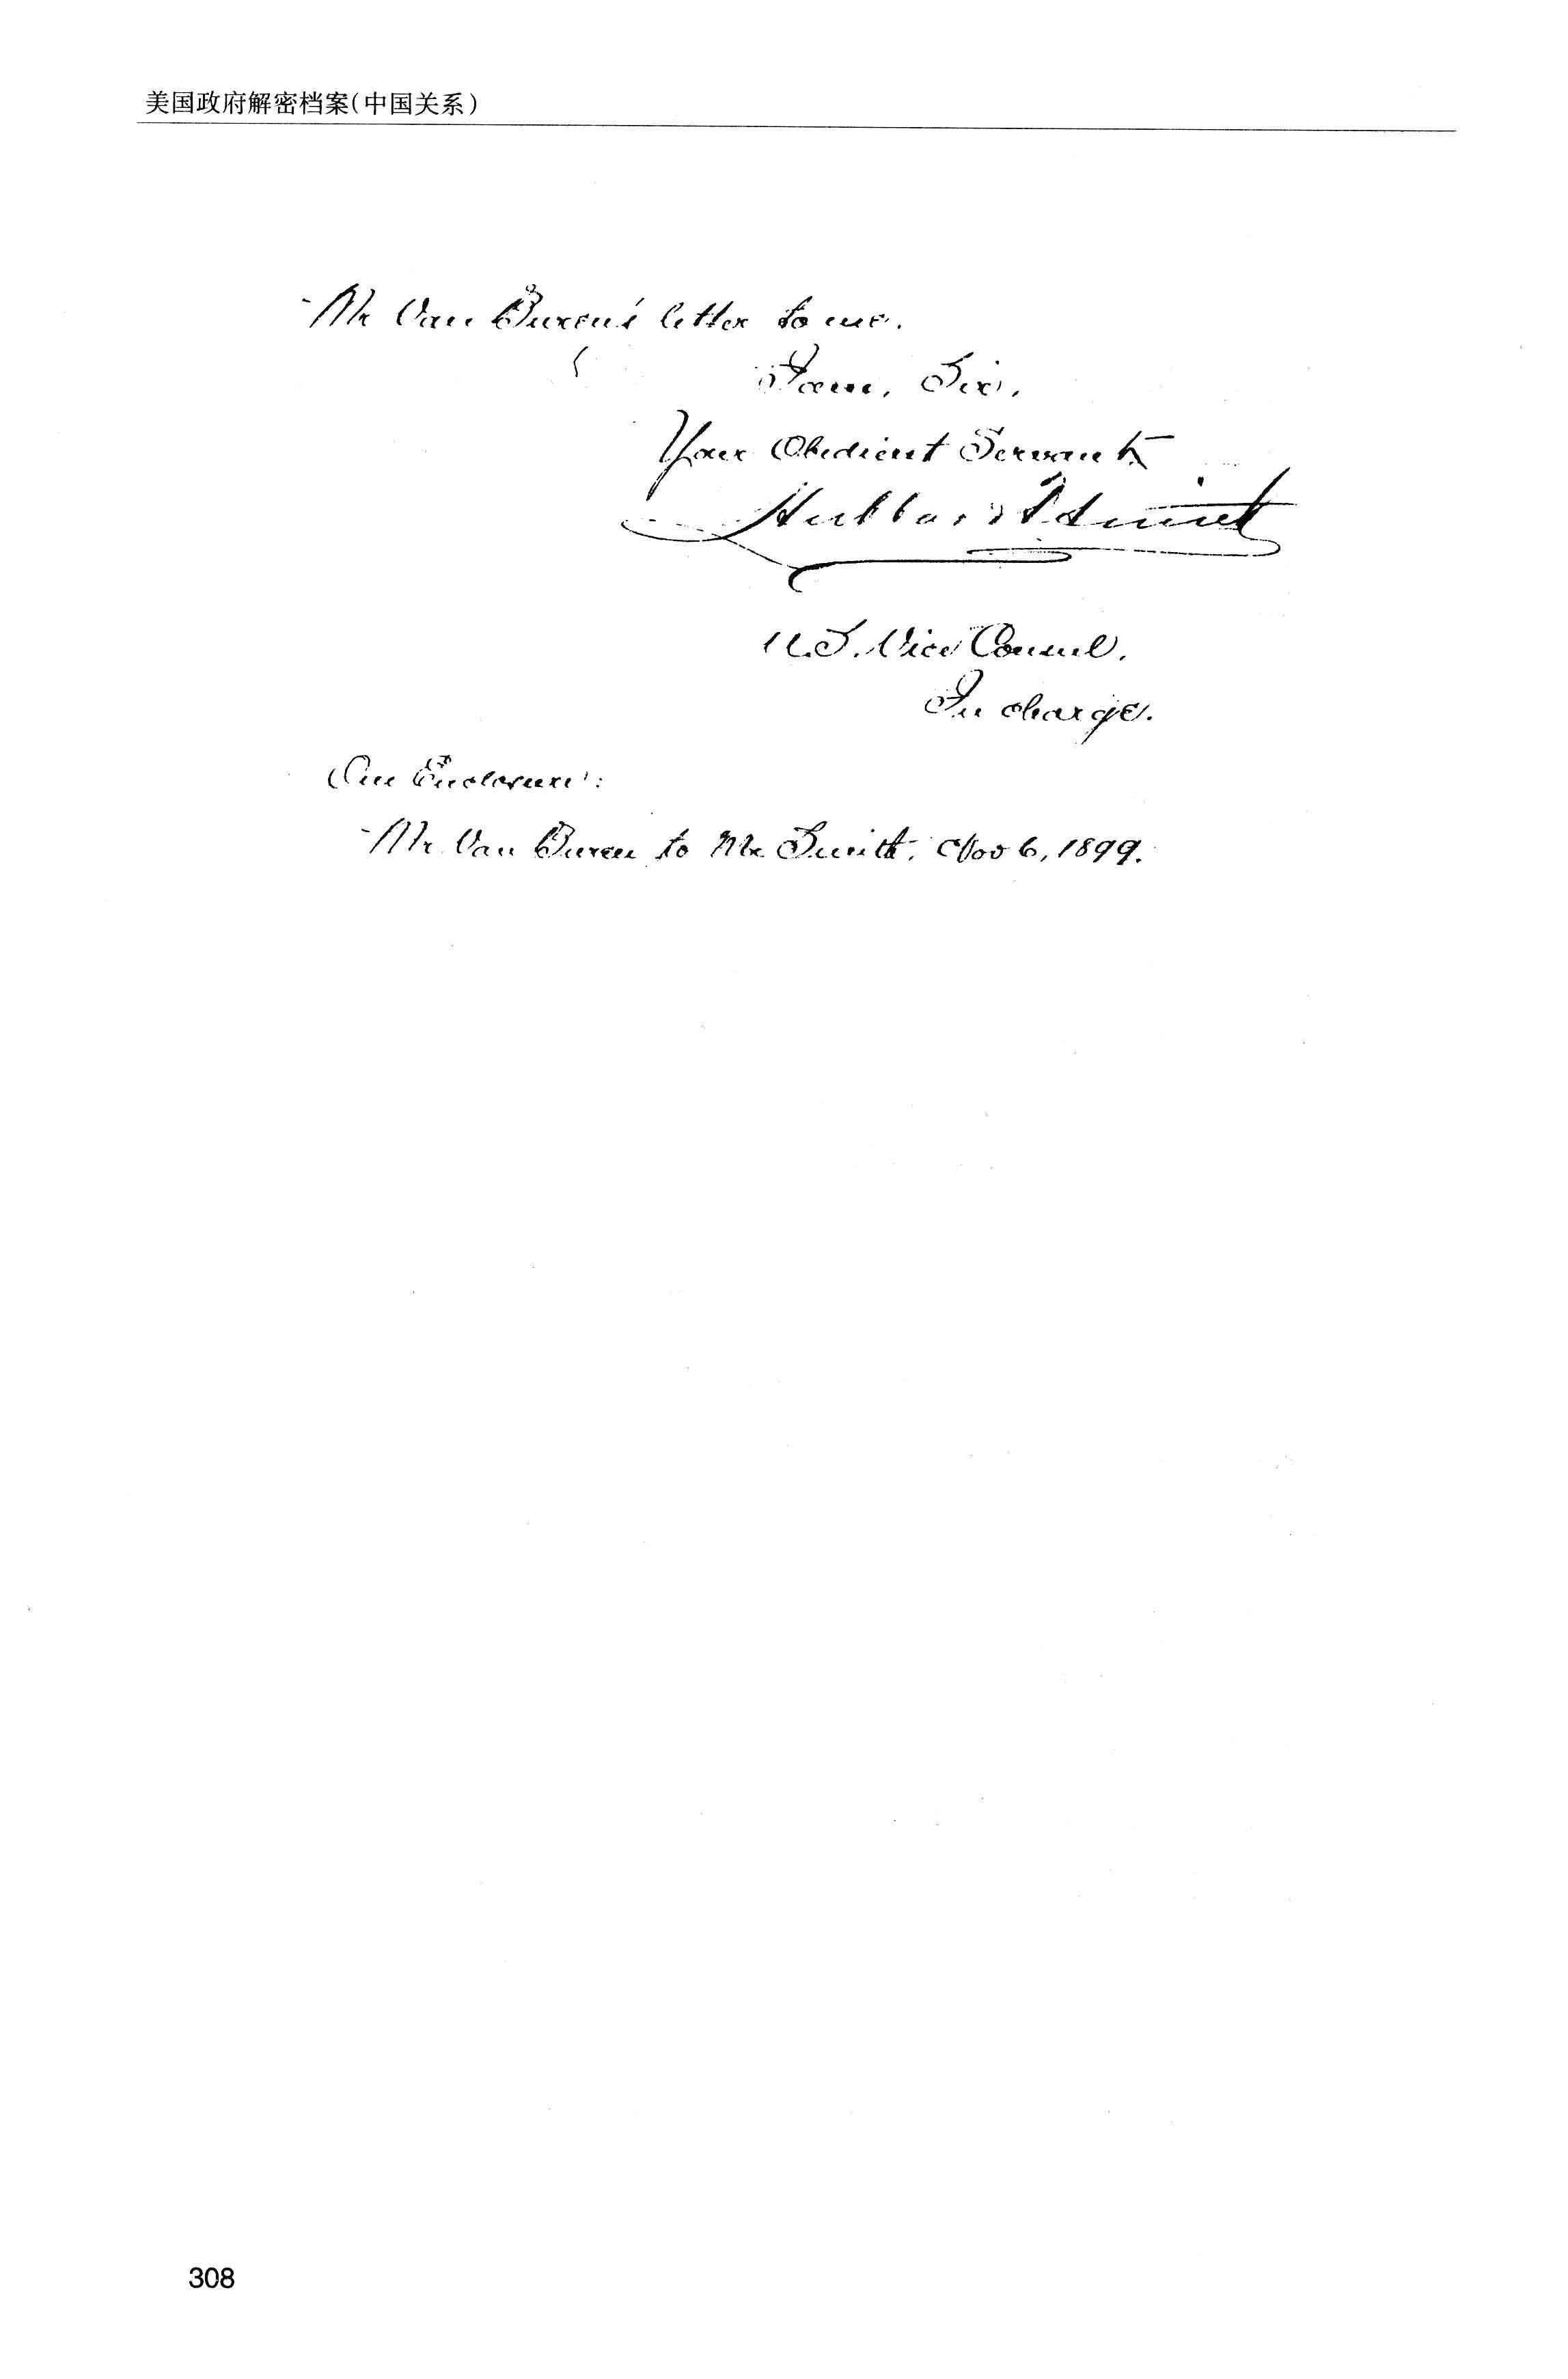 美国政府解密档案(中国关系)
Mr Van Buren's letter to me.
I am, Sir,
Your Obedient Servant,
Hubbard T. Smith
U.S. Vice Consul.
In charge.
One Enclosure:
Mr Van Buren to Mr Smith, Nov 6, 1899.
308